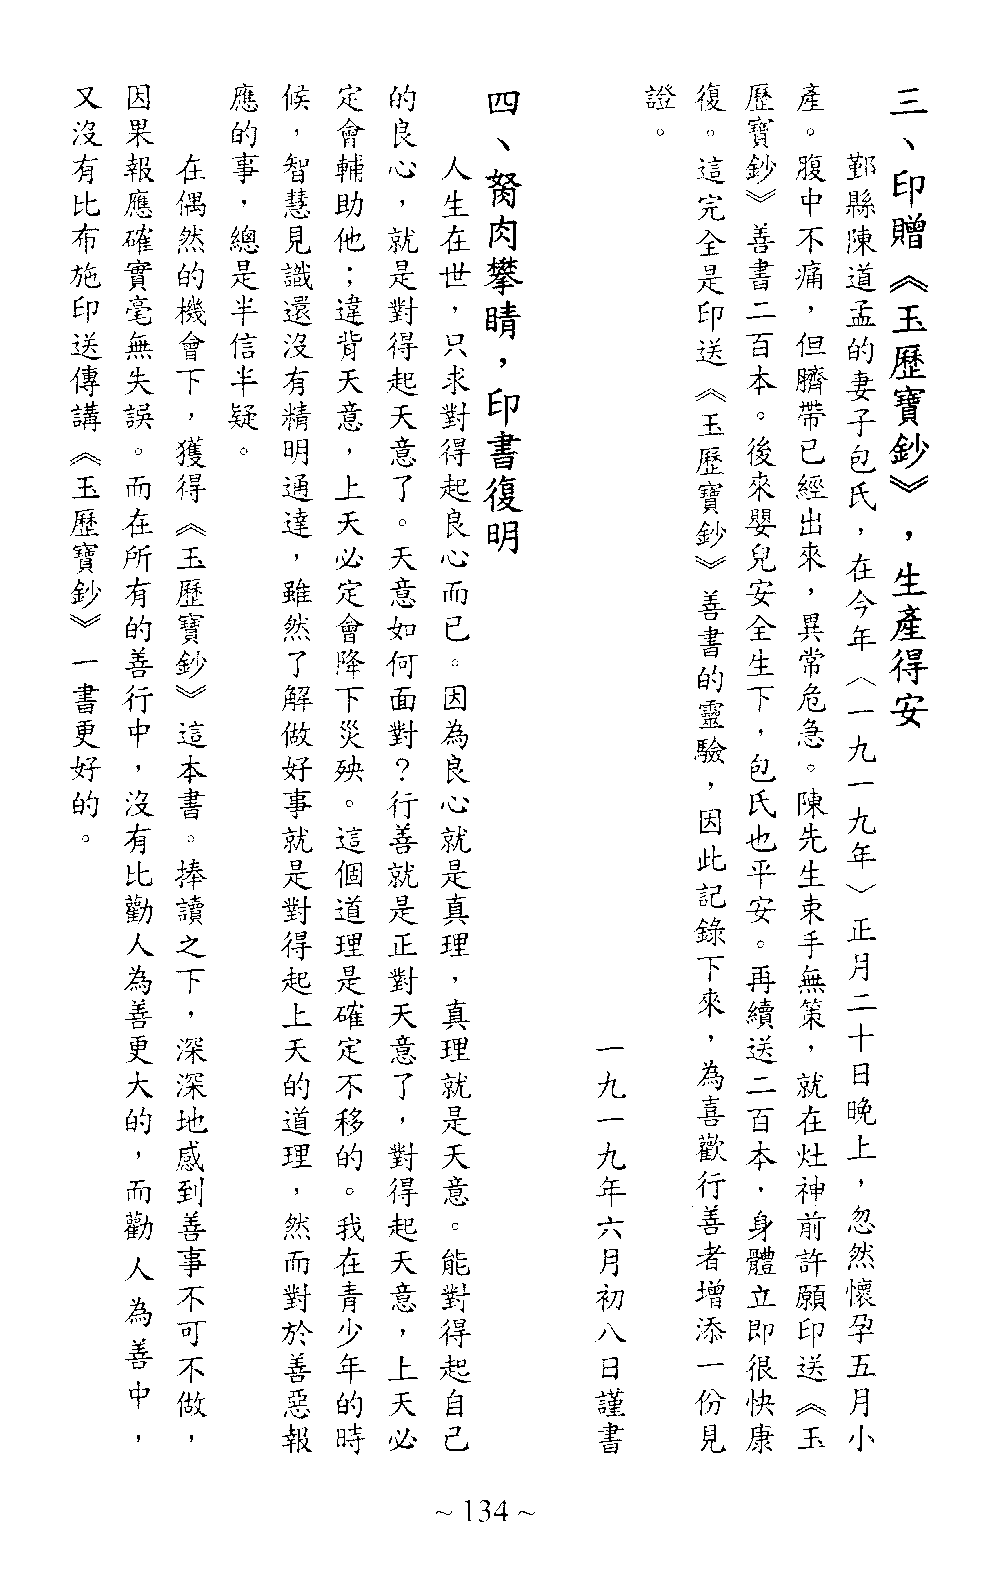 三、印贈《玉歷寶鈔》，生產得安
鄞縣陳道孟的妻子包氏，在今年（一九一九年）正月二十日晚上，忽然懷孕五月小
產。腹中不痛，但臍帶已經出來，異常危急。陳先生束手無策，就在灶神前許願印送《玉
歷寶鈔》善書二百本。後來嬰兒安全生下，包氏也平安。再續送二百本，身體立即很快康
復。這完全是印送《玉歷寶鈔》善書的靈驗，因此記錄下來，為喜歡行善者增添一份見
證。
一九一九年六月初八日謹書
四、胬肉攀睛，印書復明
人生在世，只求對得起良心而已。因為良心就是真理，真理就是天意。能對得起自己
的良心，就是對得起天意了。天意如何面對？行善就是正對天意了，對得起天意，上天必
定會輔助他；違背天意，上天必定會降下災殃。這個道理是確定不移的。我在青少年的時
候，智慧見識還沒有精明通達，雖然了解做好事就是對得起上天的道理，然而對於善惡報
應的事，總是半信半疑。
在偶然的機會下，獲得《玉歷寶鈔》這本書。捧讀之下，深深地感到善事不可不做，
因果報應確實毫無失誤。而在所有的善行中，沒有比勸人為善更大的，而勸人為善中，
又沒有比布施印送傳講《玉歷寶鈔》一書更好的。
~ 134 ~